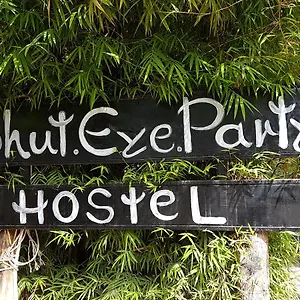 Shut.Eye.Party
HOSTEL